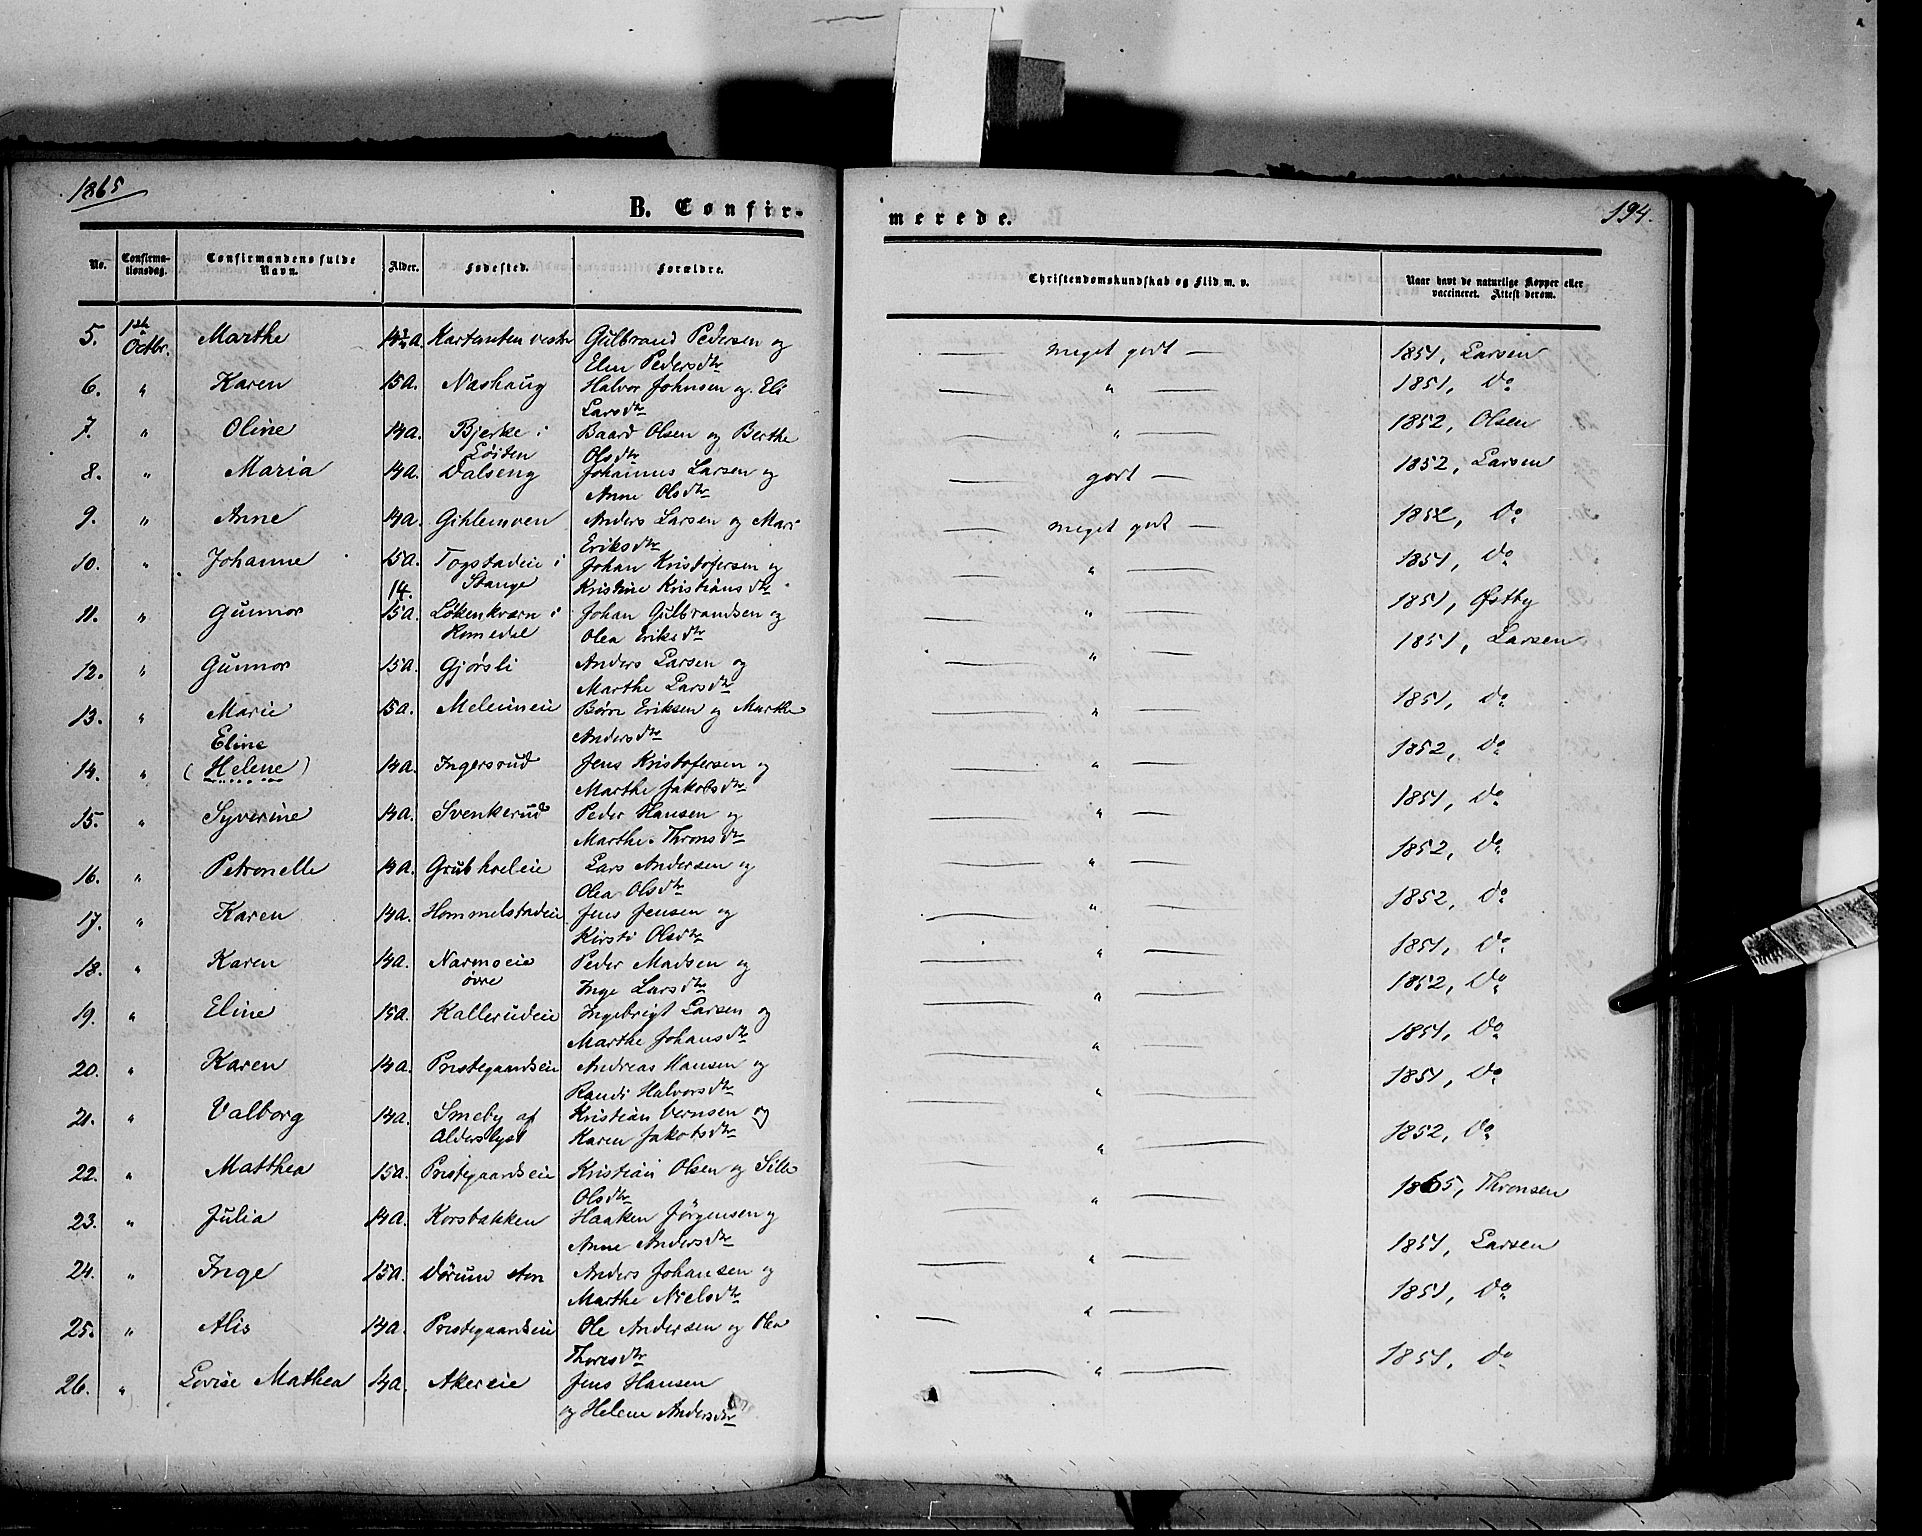 1865
B. Confir-
merede.
194.
No.
Confirma-
tionsdag.
Confirmandens fulde
Navn.
Alder.
Fødested.
Forældre.
Christendomskundskab og Flid m. v.
Naar havt de naturlige Kopper eller
vaccineret. Attest derom.
5. 1ste Octbr. Marthe 14½ a. vestre Gulbrand Pedersen og Elen Pedersdtr — meget godt — 1851, Larsen
6. " Karen 15 a. Næshaug Halvor Johnsen og Eli Larsdtr — " — 1851, Do
7. " Oline 14 a. Bjerke i Løiten Baard Olsen og Berthe Olsdtr — " — 1852, Olsen
8. " Maria 14 a. Dalseng Johannes Larsen og Anne Olsdtr — godt — 1852, Larsen
9. " Anne 14 a. Gihlemoen Anders Larsen og Mari Eriksdtr — meget godt — 1852, Do
10. " Johanne 15 a. Togstadeie i Stange Johan Kristofersen og Kristine Kristiansdtr — " — 1851, Do
11. " Gunnor 14. 15 a. Løkenkværn i Romedal Johan Gulbrandsen og Olea Eriksdtr — " — 1851, Østby
12. " Gunnor 15 a. Gjørsli Anders Larsen og Marthe Larsdtr — " — 1851, Larsen
13. " Marie 15 a. Melumeie Børre Eriksen og Marthe Andersdtr — " — 1851, Do
14. " Eline (Helene) 14 a. Ingersrud Jens Kristofersen og Marthe Jakobsdtr — " — 1852, Do
15. " Syverine 14 a. Svenkerud Peder Hansen og Marthe Thronsdtr — " — 1851, Do
16. " Petronelle 14 a. Grubholeie Lars Andersen og Olea Olsdtr — " — 1852, Do
17. " Karen 14 a. Hommelstadeie Jens Jensen og Kirsti Olsdtr — " — 1852, Do
18. " Karen 14 a. Narmoeie øvre Peder Madsen og Inge Larsdtr — " — 1851, Do
19. " Eline 15 a. Kallerudeie Ingebrigt Larsen og Marthe Johansdtr — " — 1852, Do
20. " Karen 14 a. Prestegaardseie Andreas Hansen og Randi Halvorsdtr — " — 1851, Do
21. " Valborg 14 a. Smeby af Alderslyst Kristian Vernsen og Karen Jakobsdtr — " — 1851, Do
22. " Matthea 15 a. Prestegaardseie Kristian Olsen og Olsdtr — " — 1852, Do
23. " Julia 14 a. Korsbakken Haaken Jørgensen og Anne Andersdtr — " — 1865, Thronsen
24. " Inge 15 a. Dørum Anders Johansen og Marthe Nielsdtr — " — 1851, Larsen
25. " Alis 14 a. Prestegaardseie Ole Andersen og Olea Thoresdtr — " — 1851, Do
26. " Lovise Mathea 14 a. Akereie Jens Hansen og Helene Andersdtr — " — 1851, Do